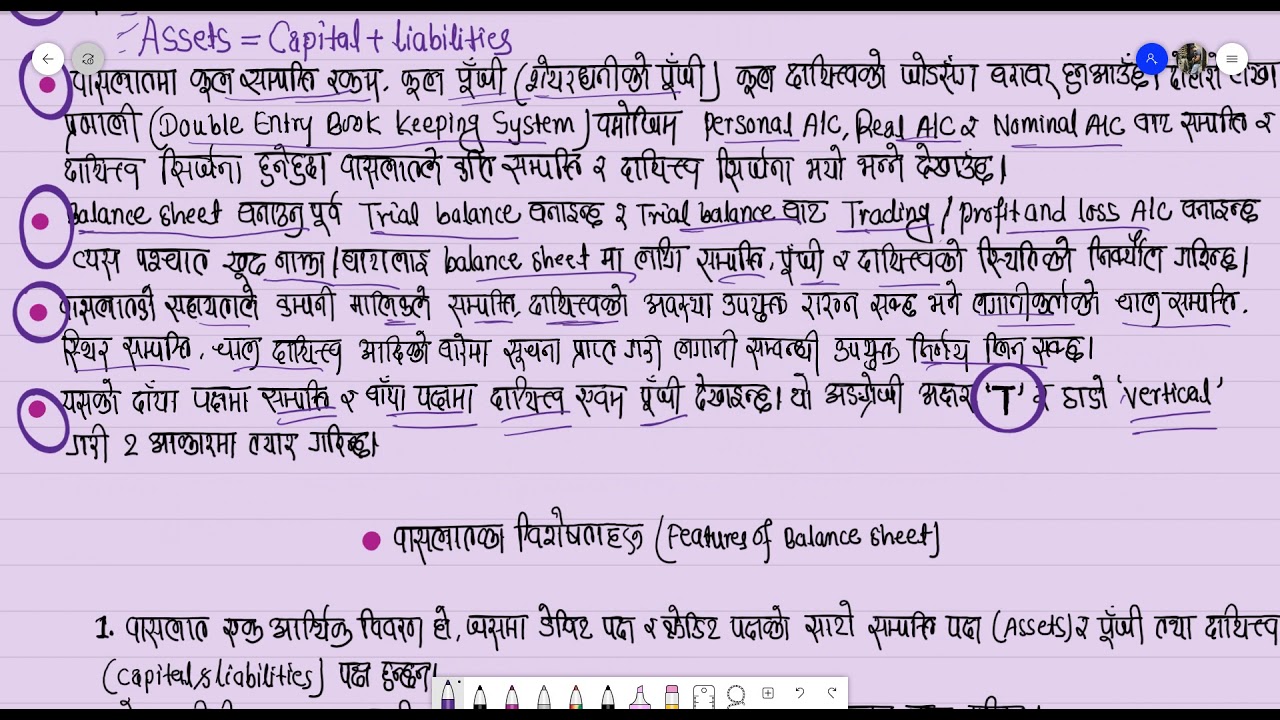 Assets = Capital + liabilities
वासलातमा कूल सम्पत्ति रकम, कूल पूँजी (शेयरधनीको पूँजी) कूल दायित्वको जोडसँग बराबर हुन आउँछ। दोहोरो लेखा
प्रणाली (Double Entry Book Keeping System) बमोजिम Personal A/C, Real A/C र Nominal A/C बाट सम्पत्ति र
दायित्त्व सिर्जना हुने हुँदा वासलातले कति सम्पत्ति र दायित्त्व सिर्जना भयो भन्ने देखाउँछ।
Balance sheet बनाउनु पूर्व Trial balance बनाइन्छ र Trial balance बाट Trading / profit and loss A/C बनाइन्छ
त्यस पश्चात खुद नाफा/घाटालाई balance sheet मा लगी सम्पत्ति, पूँजी र दायित्त्वको स्थितिको निर्क्यौल गरिन्छ।
वासलातको सहायताले कम्पनी मालिकले सम्पत्ति, दायित्त्वको अवस्था उपयुक्त राख्न सक्छ भने लगानीकर्ताको चालु सम्पत्ति,
स्थिर सम्पत्ति, चालु दायित्त्व आदिको बारेमा सूचना प्राप्त गरी लगानी सम्बन्धी उपयुक्त निर्णय लिन सक्छ।
यसको दाँया पक्षमा सम्पत्ति र बाँया पक्षमा दायित्त्व एवम पूँजी देखाइन्छ। यो अङग्रेजी अक्षर 'T' र ठाडो 'vertical'
गरी 2 आकारमा तयार गरिन्छ।
वासलातका विशेषताहरू (Features of Balance sheet)
1. वासलात एक आर्थिक विवरण हो, जसमा डेबिट पक्ष र क्रेडिट पक्षको साटो सम्पत्ति पक्ष (Assets) र पूँजी तथा दायित्त्व
(Capital & liabilities) पक्ष हुन्छन्।